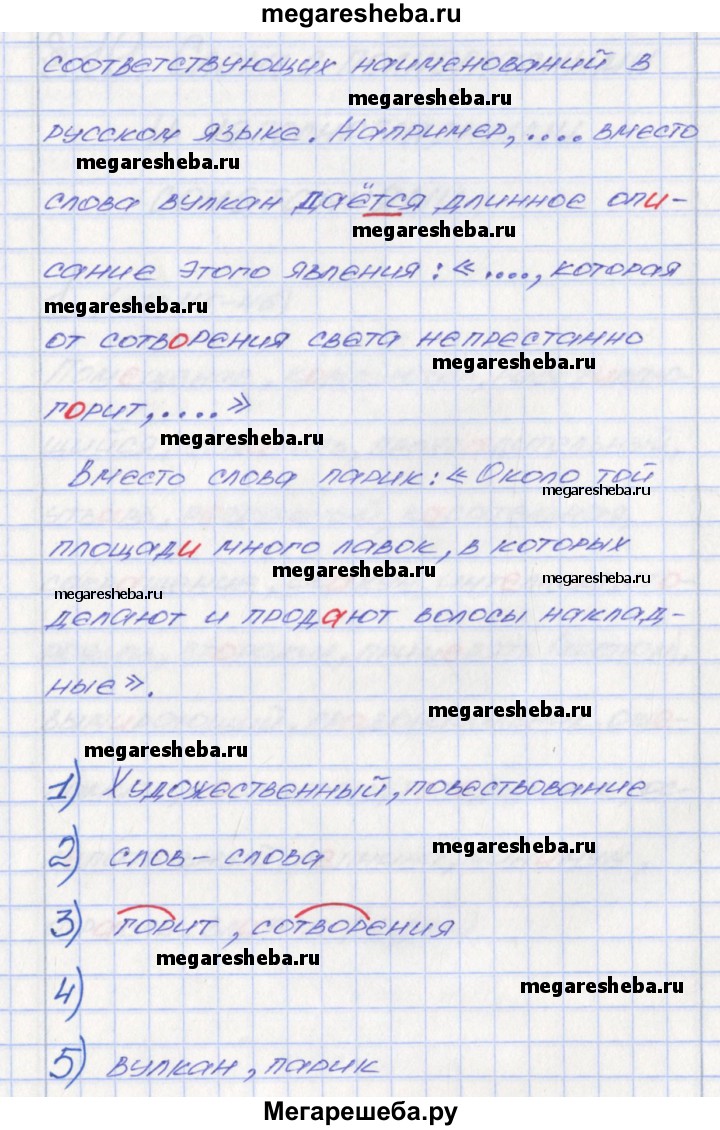 megaresheba.ru
соответствующих наименований в
megaresheba.ru
русском языке. Например, .... вместо
megaresheba.ru
слова вулкан даётся длинное опи-
megaresheba.ru
сание этого явления: «...., которая
megaresheba.ru
от сотворения света непрестанно
megaresheba.ru
горит, ....»
megaresheba.ru
Вместо слова парик: «Около той
megaresheba.ru
площади много лавок, в которых
megaresheba.ru
megaresheba.ru
megaresheba.ru
делают и продают волосы наклад-
ные».
megaresheba.ru
megaresheba.ru
1) Художественный, повествование
megaresheba.ru
2) слов - слова
3) горит, сотворения
megaresheba.ru
4)
megaresheba.ru
5) вулкан, парик
Мегарешеба.ру